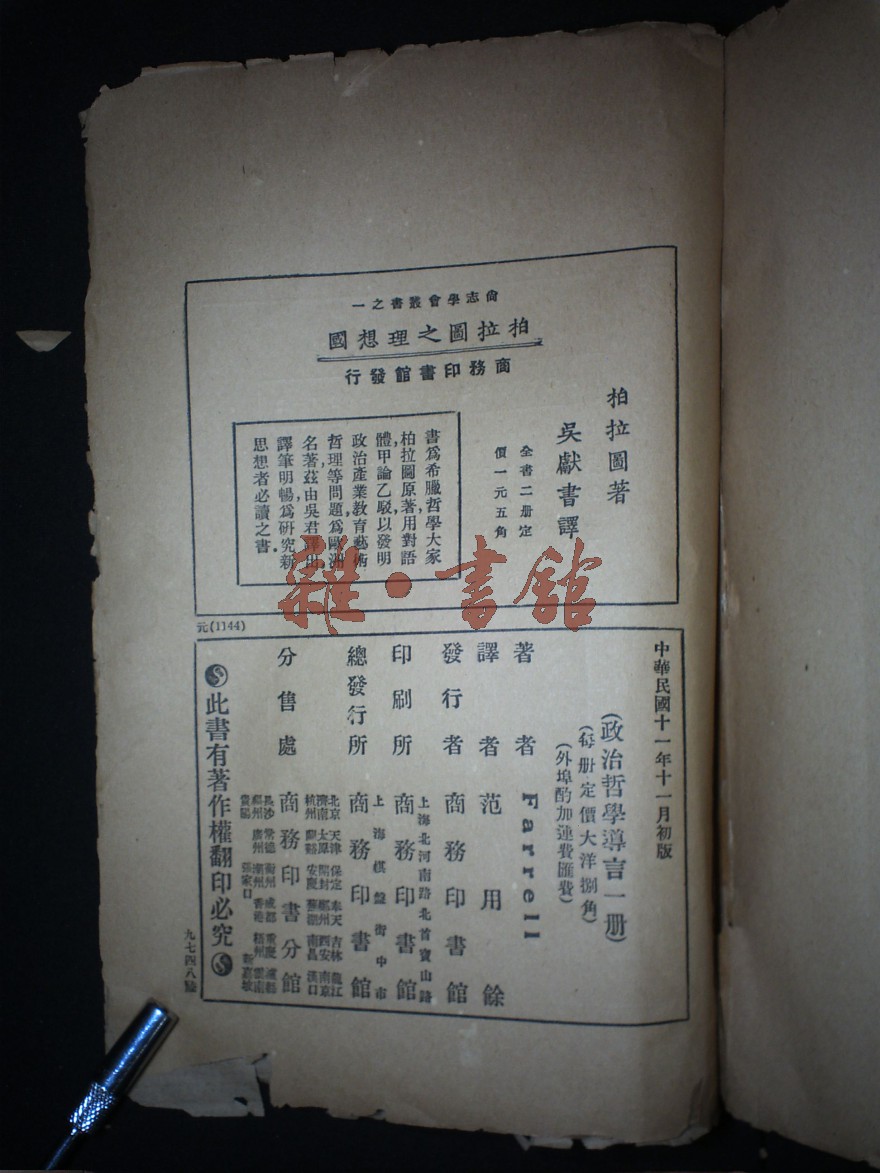 尙志學會叢書之一
柏拉圖之理想國
商務印書館發行
柏拉圖著
吳獻書譯
全書二册定
價一元五角
書爲希臘哲學大家
柏拉圖原著用對語
體甲論乙駁以發明
政治產業教育藝術
哲理等問題爲歐洲
名著茲由吳君譯出
譯筆明暢爲研究新
思想者必讀之書
元(1144)
雜·書館
中華民國十一年十一月初版
(政治哲學導言一册)
(每册定價大洋捌角)
(外埠酌加運費匯費)
著者 Farrell
譯者 范用餘
發行者 商務印書館
上海北河南路北首寶山路
印刷所 商務印書館
上海棋盤街中市
總發行所 商務印書館
北京 天津 保定 奉天 吉林 龍江
濟南 太原 開封 鄭州 西安 南京
杭州 蘭谿 安慶 蕪湖 南昌 漢口
分售處 商務印書分館
長沙 常德 衡州 成都 重慶 瀘縣
福州 廣州 潮州 香港 梧州 雲南
貴陽 張家口 新嘉坡
此書有著作權翻印必究
九七四八